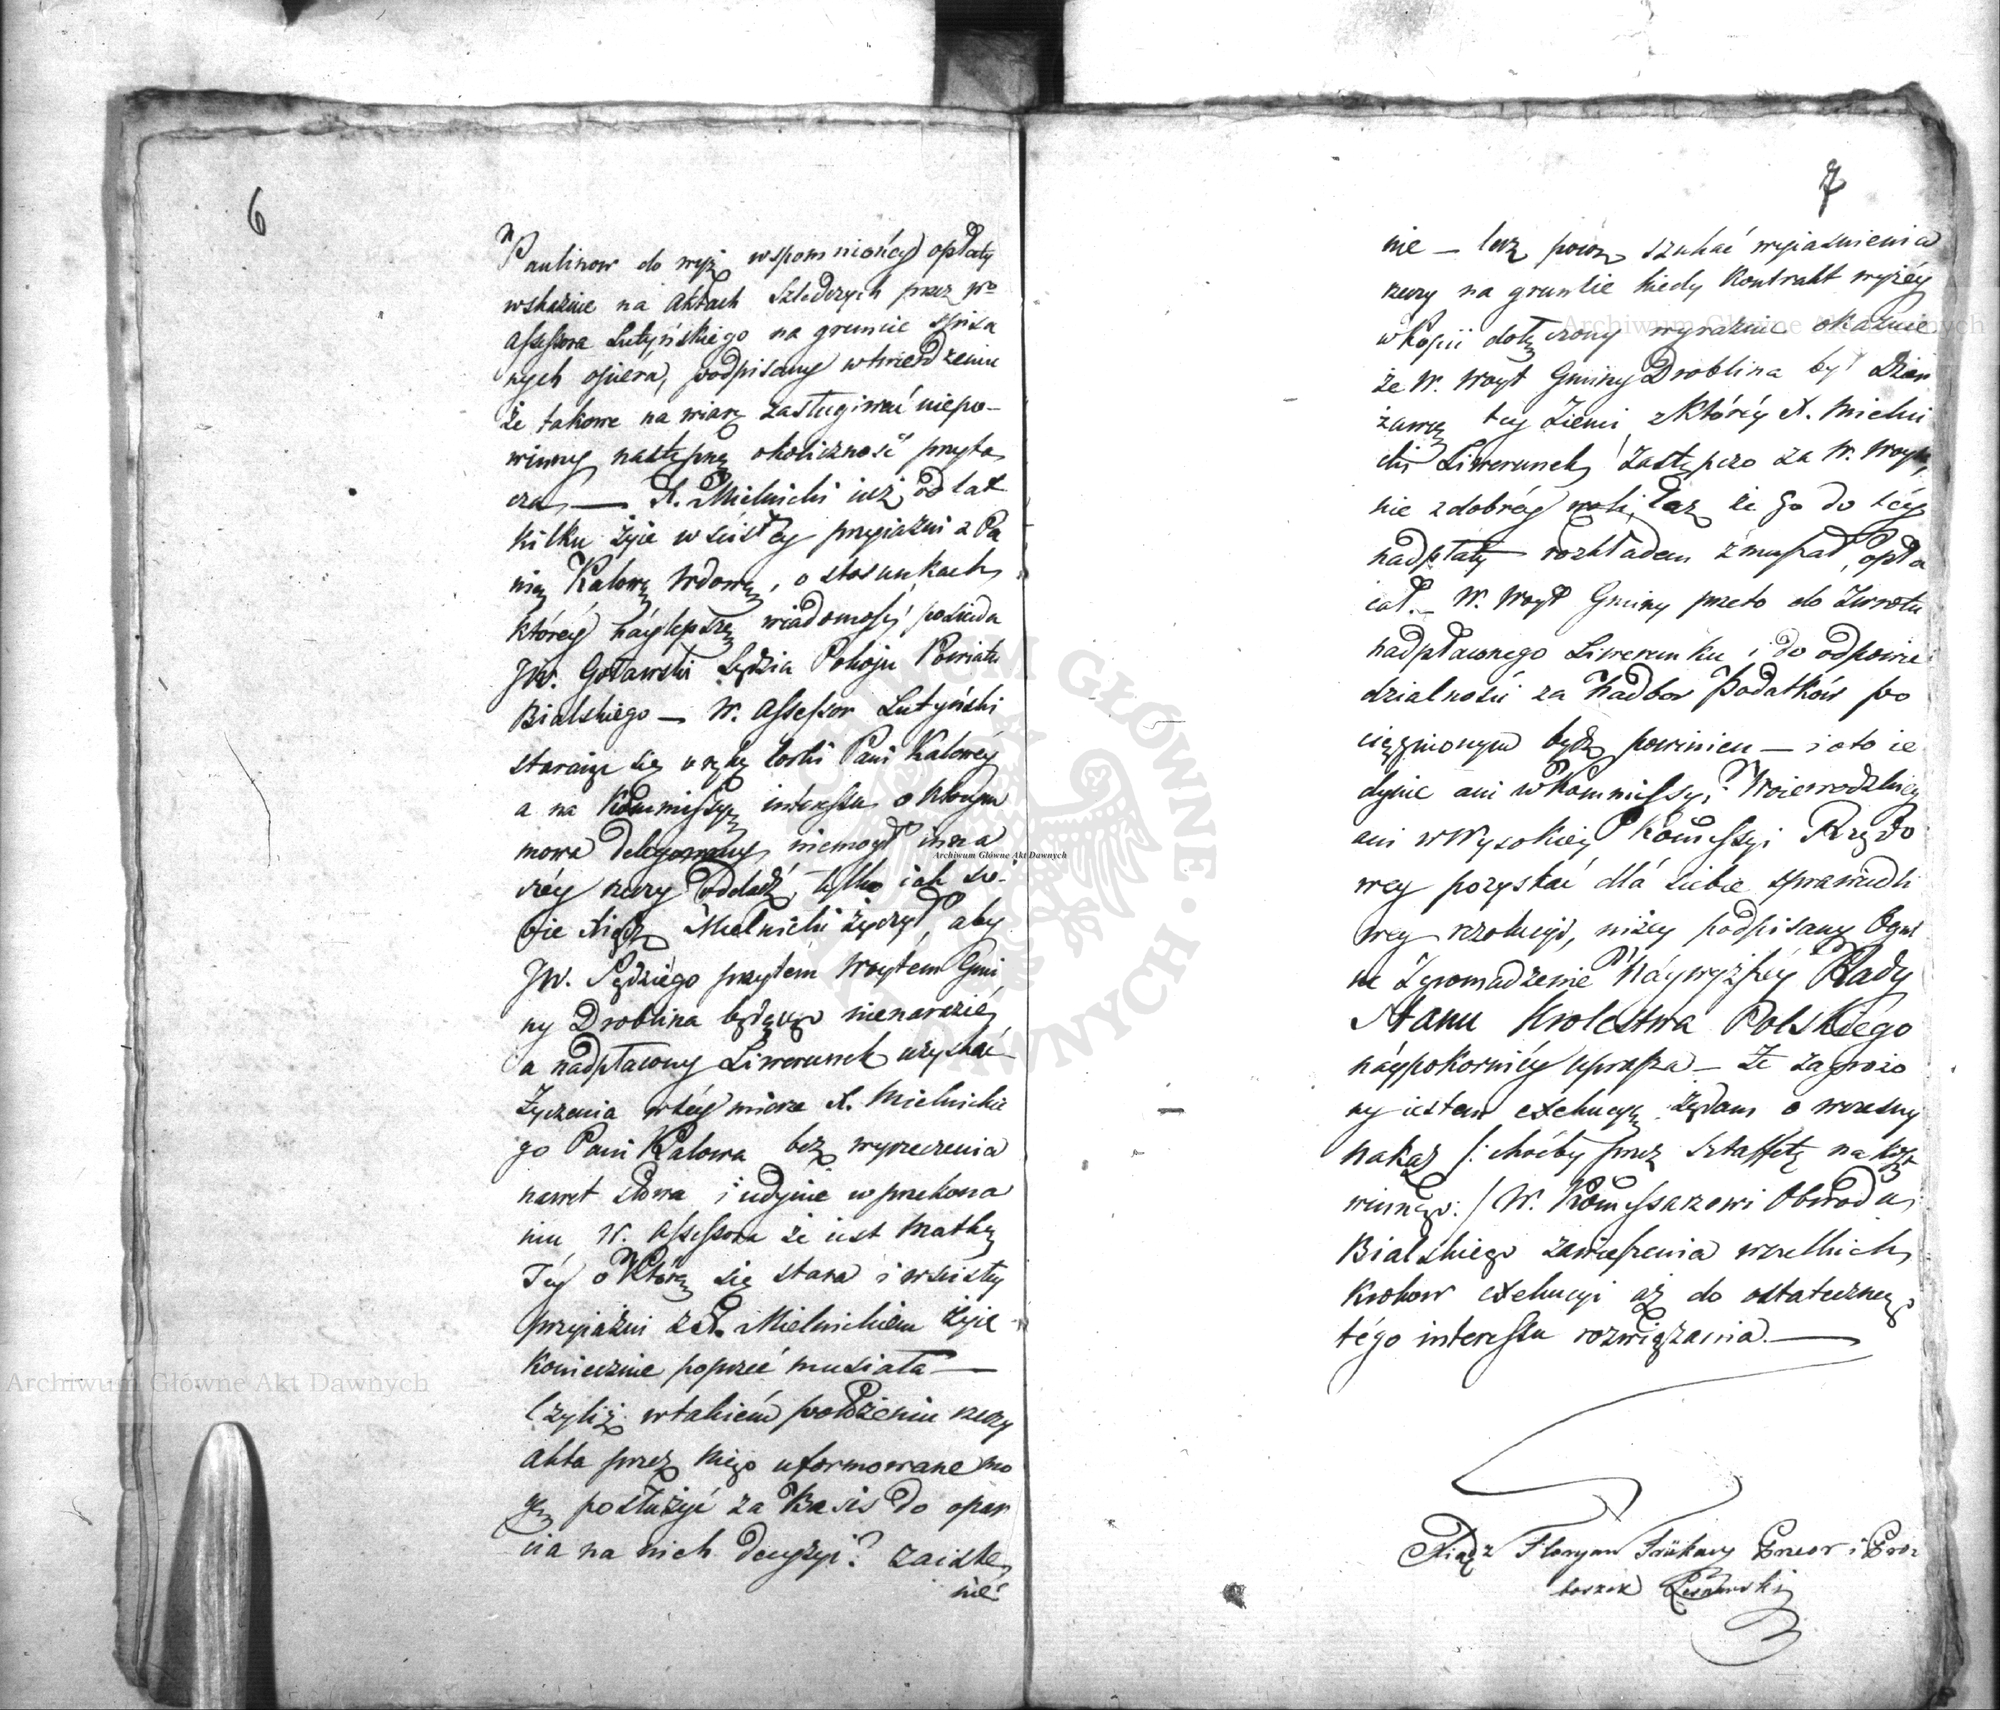 6
Paulinow do wyż wspomnioney opłaty
wskaźuie na aktach Szledczych przez Wo
Assessora Lutyńskiego na gruncie spisa
nych opiera, podpisany w twierdzeniu
że takowe na wiarę zasługiwać niepo-
winny następną okoliczność przyta
cza, — X. Mielnicki iuż od lat
kilku żyie w ścisłey przyiaźni z Pa
nią Kalową Wdową, o stosunkach
którey náylepszą wiadomość posiada
JW. Goławski Sędzia Pokoju Powiatu
Bialskiego — W. Assessor Lutyński
staraiąc się o rękę Corki Pani Kalowéy
a na Kommissyę interessu o którym
mowa delegowany niemogł inza
rzéy oddadź, tylko iak so-
bie Xiądz Mielnicki życzył, aby
JW. Sędziégo przytém Woytém Gmi
ny Droblina będącego nienarazić,
a nadpłacony Liwerunek uzyskać
Życzenia w téy mierze X. Mielnickie
go Pani Kalowa bez wyrzeczenia
nawet słowa i iedynie w przekona
niu W. Assessora że iest Matką
Téy o Którą się stara i w ścisłey
przyiaźni z X. Mielnickiem żyie
koniecznie poprzeć musiała —
Czyliż w takiém położeniu rzeczy
akta przez niego uformowane mo
gą posłużyć za Basis do opar
cia na nich decyzyi? zaiste
nie
7
nie — lecz szukać wyiasnienia
rzeczy na gruncie kiedy Kontrakt wyżéy
w Kopii dołączony wyraźnie okazuie
że W. Woyt Gminy Droblina był Dzier
żawcą tey Ziemi z któréy X. Mielni
cki Liwerunek Zastępczo za W. Woyta,
nie z dobréy woli, lecz że go do téy
nadpłaty rozkładem zmuszał, opła
cał. — W. Woyt Gminy przeto do Zwrotu
nadpłaconego Liwerunku i do odpowie
dzialności za Nadbor Podatków po
ciągnionym bydź powinien — i oto ie
dynie ani w Kommissyi Woiewodzkiey
ani w Wysokiey Kommissyi Rządo
wey pozyskać dlá siebie sprawiedli
wey rezolucyi, niżey podpisany
Zgromadzenie Náywyższéy Rady
Stanu Krolestwa Polskiego
náypokorniéy uprasza — Że zagrożo
ny iestem exekucyą żądam o wczesny
nakaz /: choćby przez Sztaffetę na
:/ W. Kommissarzowi Obwodu
Bialskiego zawieszenia wszelkich
Krokow exekucyi aż do ostatecznego
tégo interessu rozwiązania. —
Xiądz Floryan Przeor i Pro
boszcz